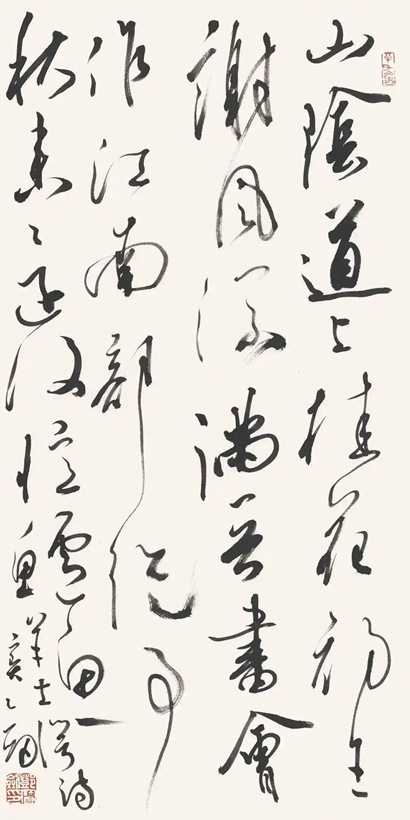 山陰道上桂花初王
謝風流滿晉書曾
作江南部從事
秋來還復憶鱸魚
羊士諤詩